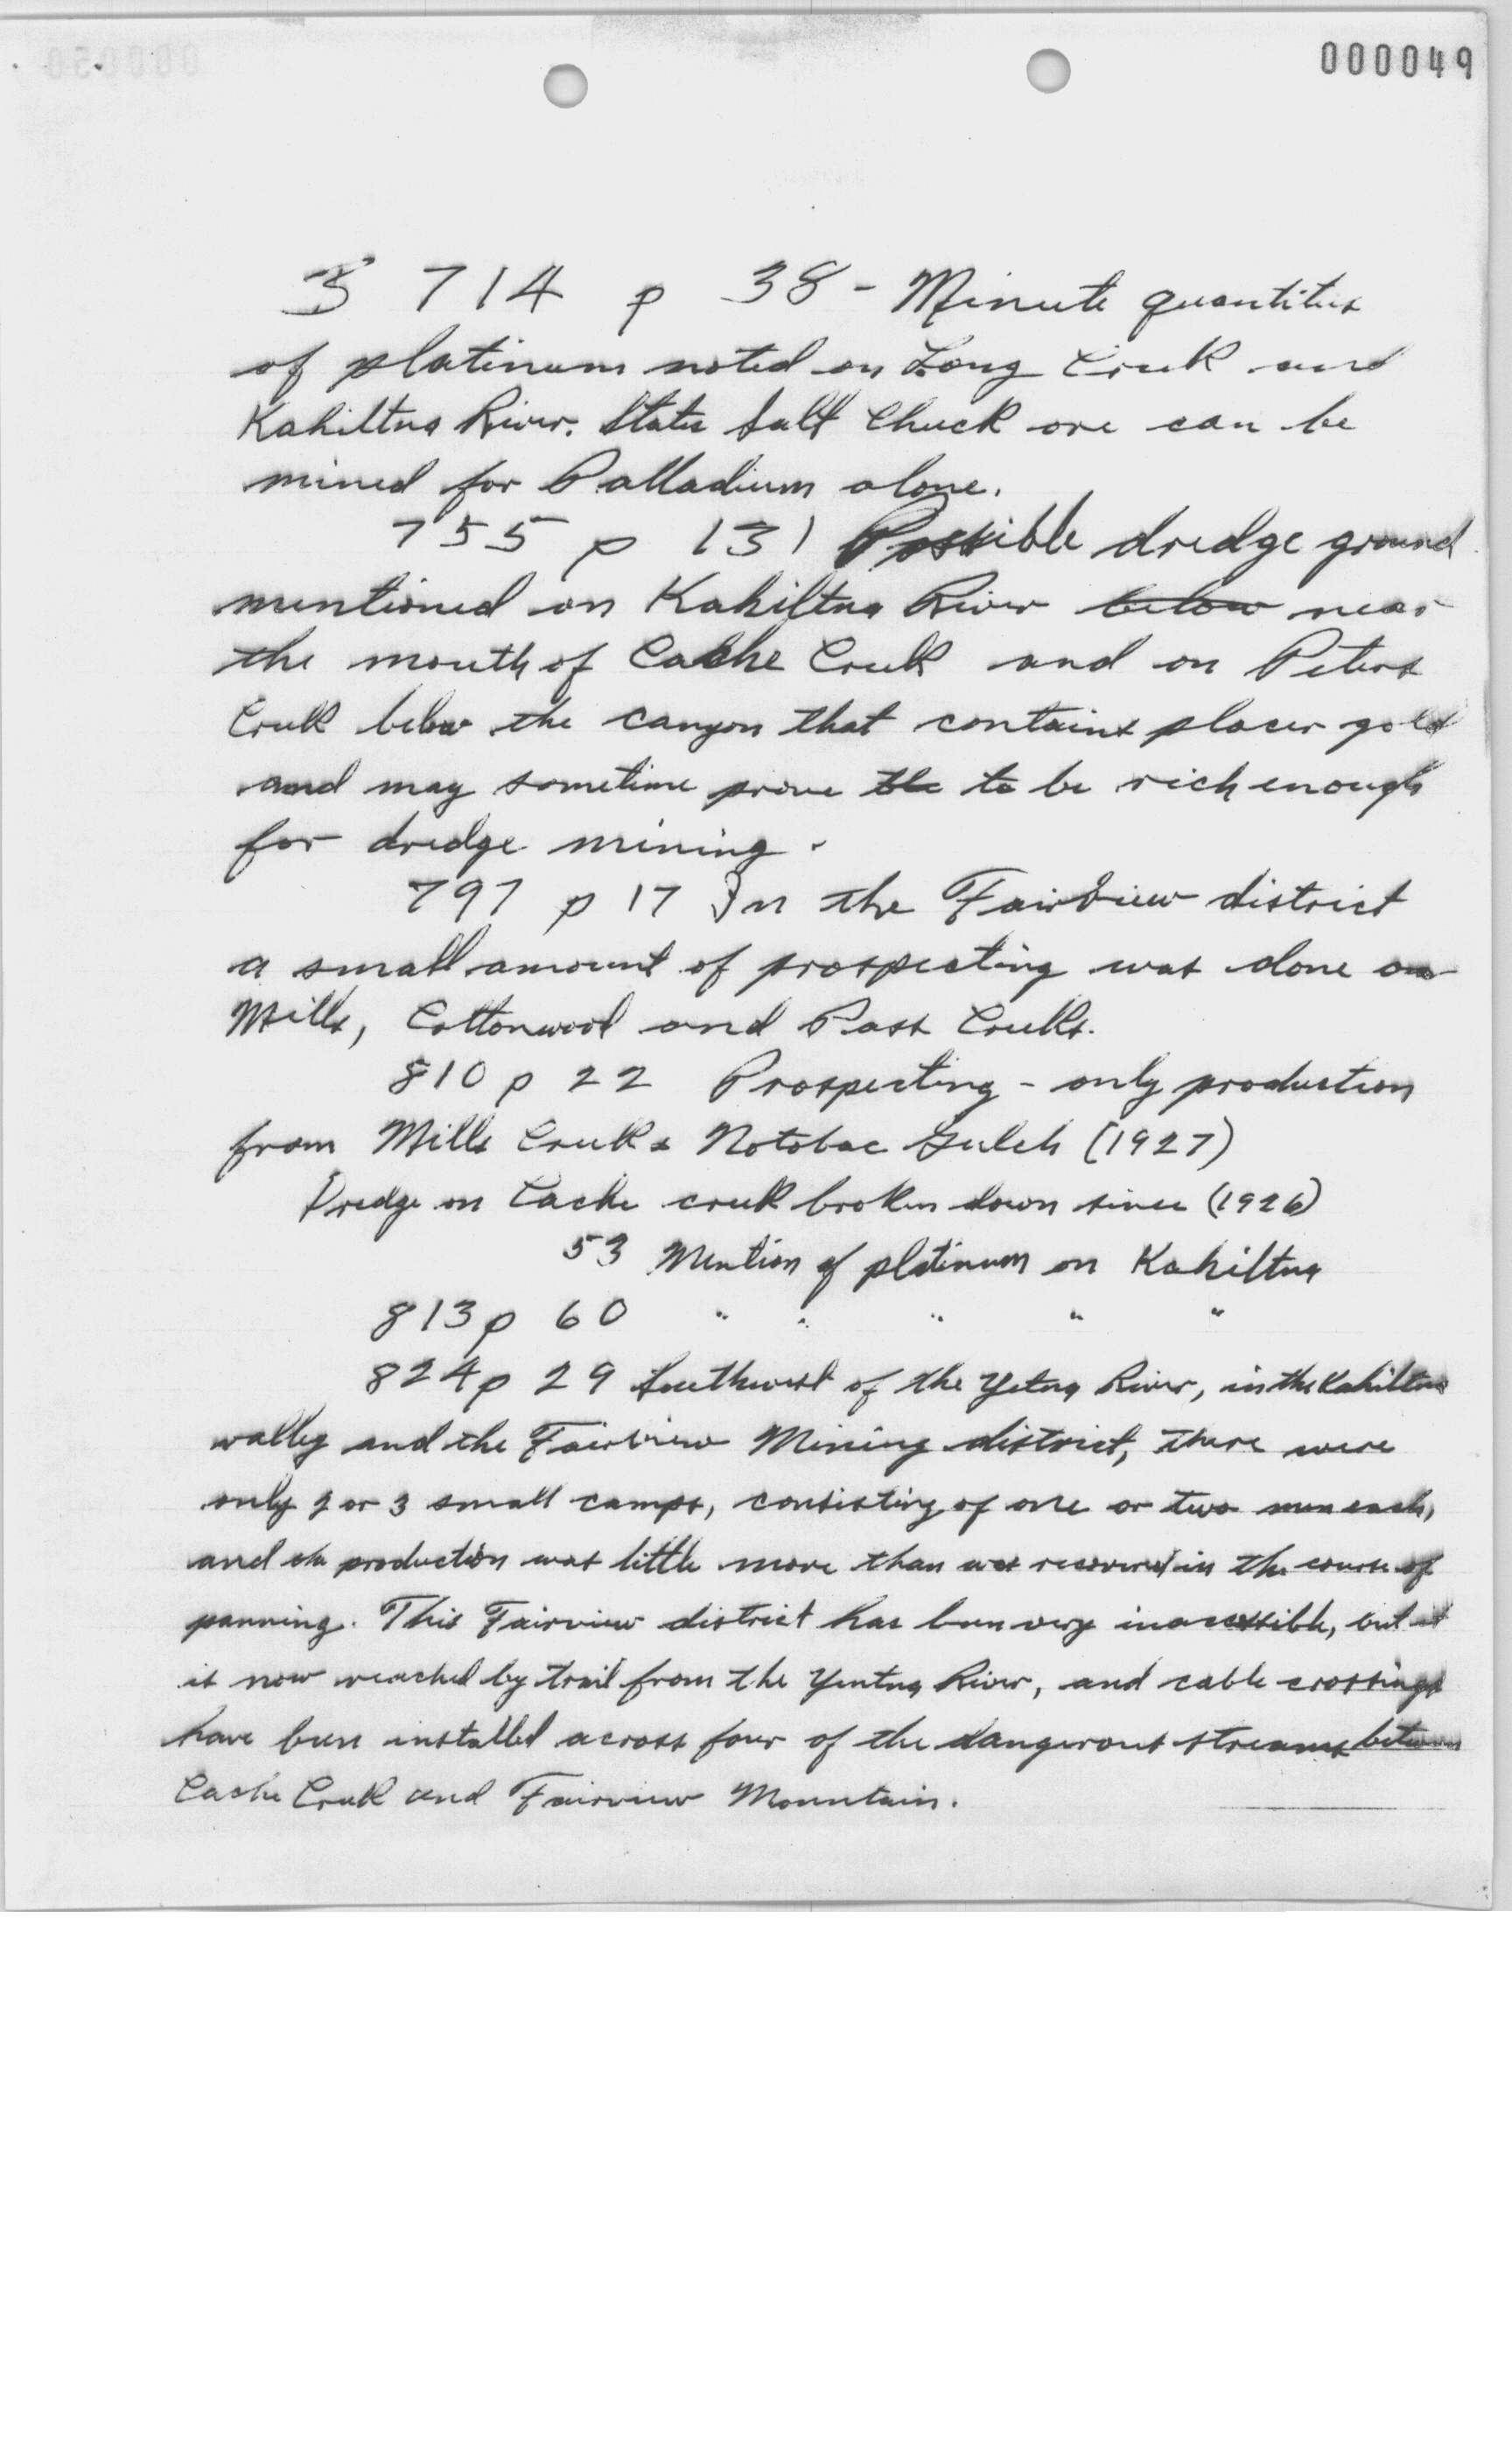 000049
714 p 38 - Minute quantities
of platinum noted on Long Creek and
Kahiltna River. States Salt Chuck ore can be
mined for Palladium alone.
755 p 131 Possible dredge ground
mentioned on Kahiltna River below near
the mouth of Cache Creek and on Peters
Creek below the canyon that contains placer gold
and may sometime prove the to be rich enough
for dredge mining.
797 p 17 In the Fairview district
a small amount of prospecting was done on
Mills, Cottonwood and Pass Creeks.
810 p 22 Prospecting - only production
from Mills Creek & Notobac Gulch (1927)
Dredge on Cache creek broken down since (1926)
53 Mention of platinum on Kahiltna
813 p 60 " " " " "
824 p 29 Southwest of the Yetna River, in the Kahiltna
valley and the Fairview Mining district, there were
only 2 or 3 small camps, consisting of one or two men each,
and the production was little more than was recovered in the course of
panning. This Fairview district has been very inaccessible, but it
is now reached by trail from the Yentna River, and cable crossings
have been installed across four of the dangerous streams between
Cache Creek and Fairview Mountain.